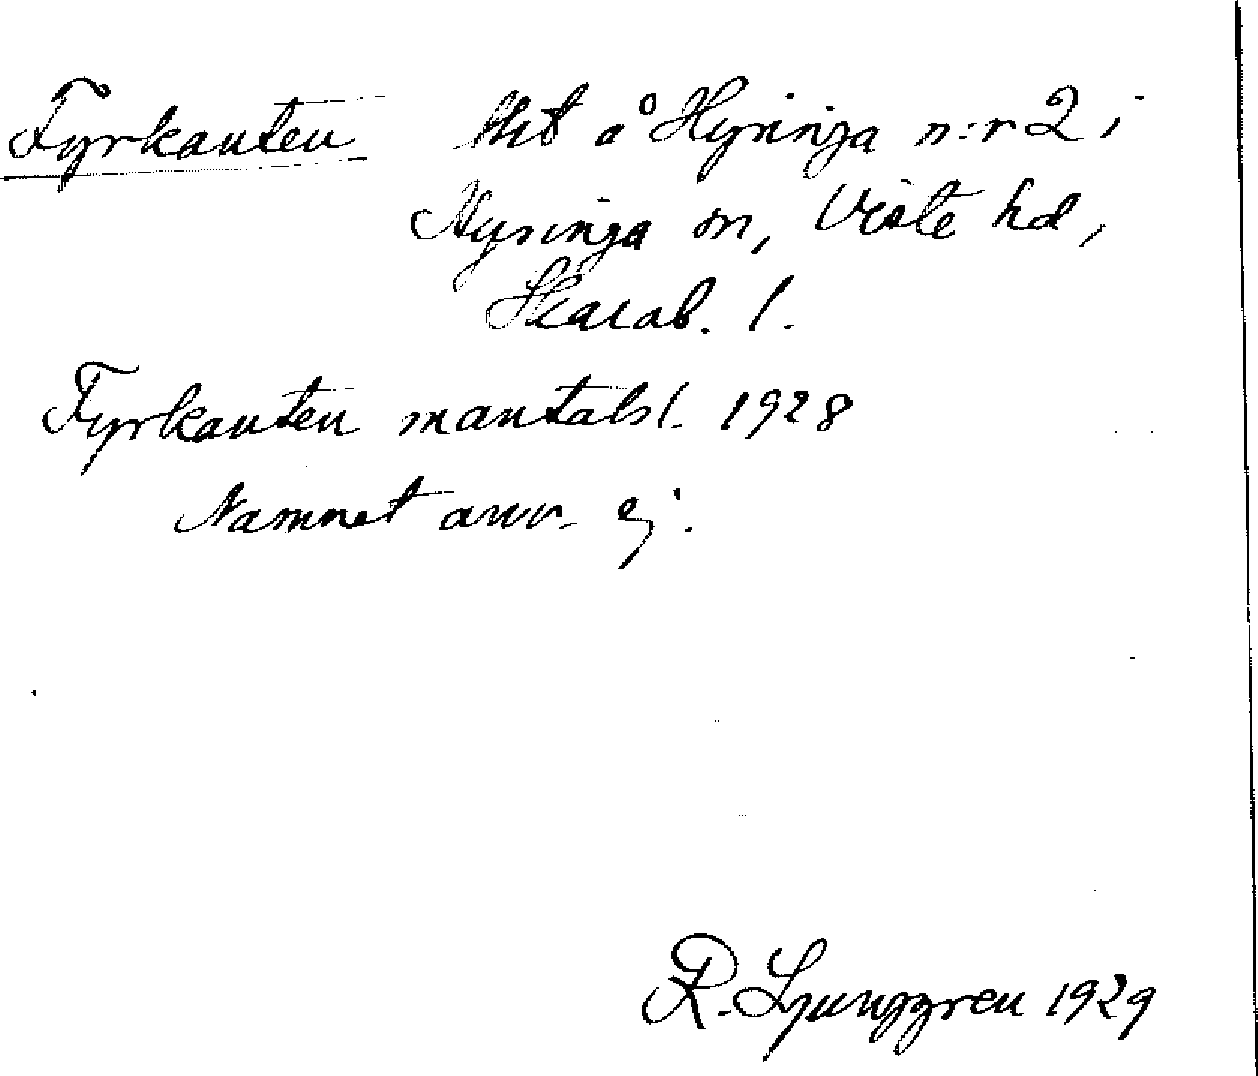 Fyrkanten tht å Hyringa n:r 2 i
Hyringa sn, Viste hd,
Skarab. l.
Fyrkanten mantalsl. 1928
Namnet anv. ej.
R. Ljunggren 1929